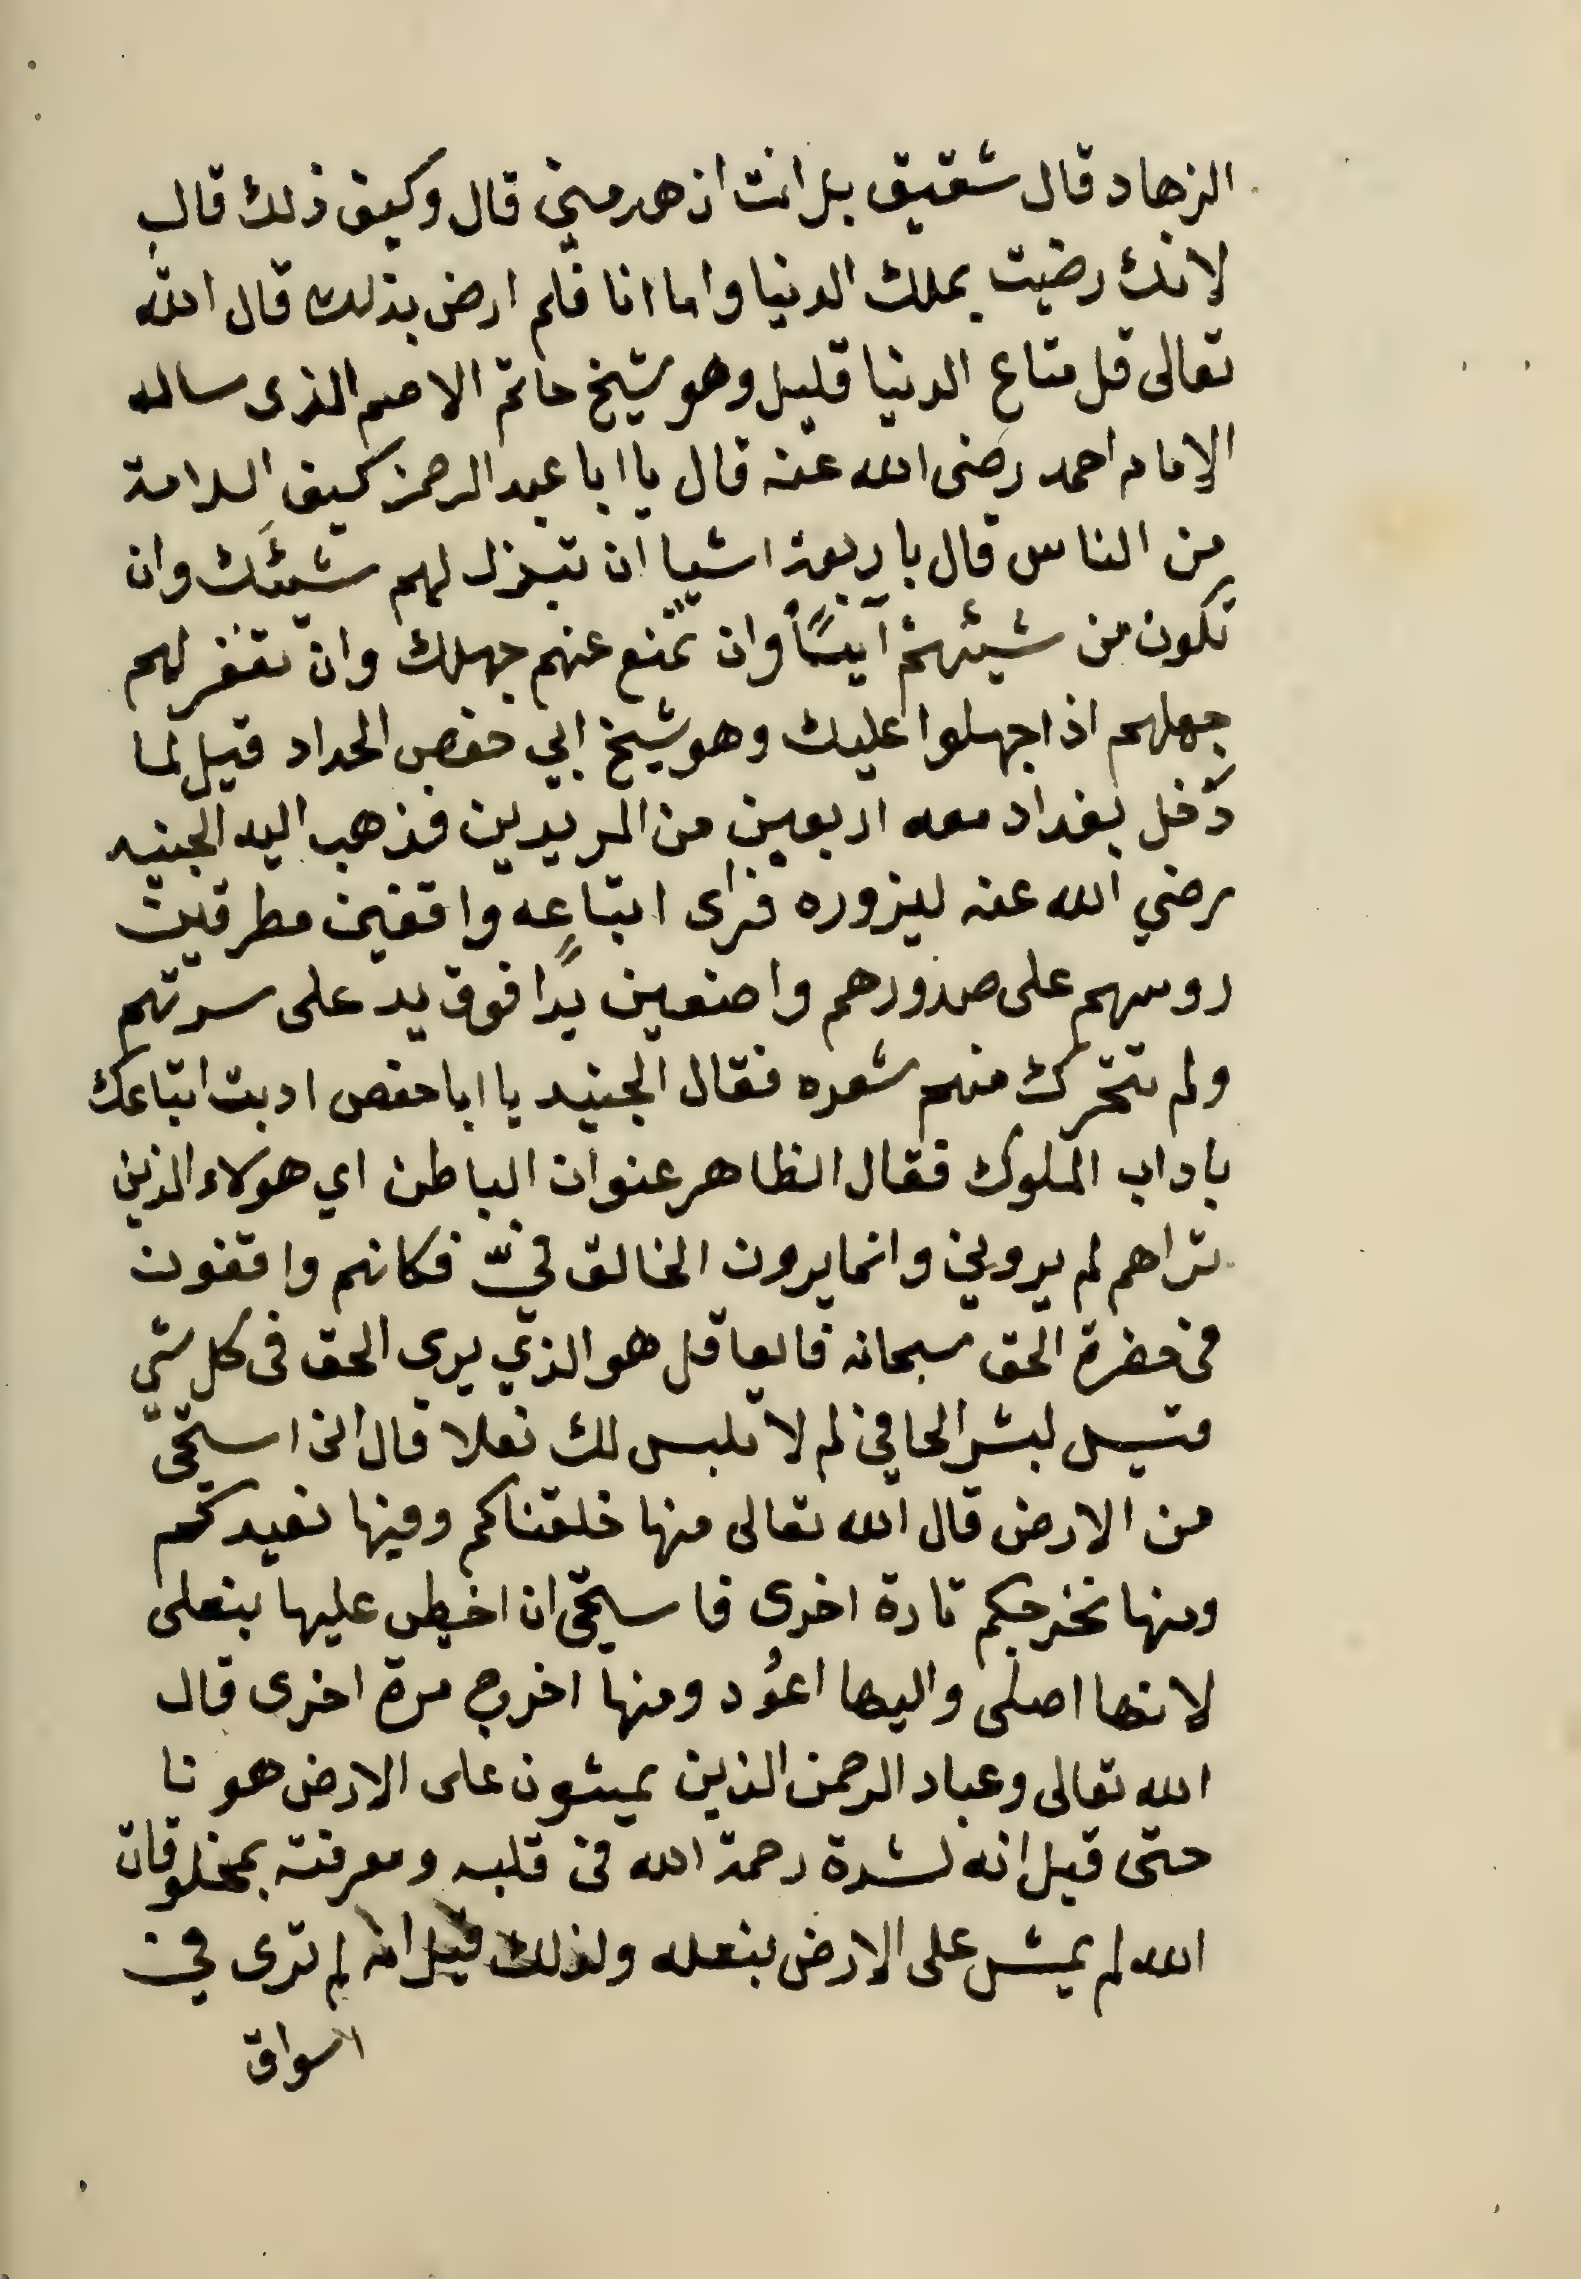 الزهاد قال شقيق بل انت ازهد مني قال وكيف ذلك قال
لانك رضيت بملك الدنيا واما انا فلم ارض بذلك قال الله
تعالى قل متاع الدنيا قليل وهو شيخ حاتم الاصم الذى ساله
الإمام احمد رضى الله عنه قال يا ابا عبد الرحمن كيف السلامة
من الناس قال باربعة اشيا ان تبذل لهم شيئَك وان
تكون من شيئهم آيسًا وان تمنع عنهم جهلك وان تغفر لهم
جهلهم اذا جهلوا عليك وهو شيخ ابي حفص الحداد قيل لما
دخل بغداد معه اربعين من المريدين فذهب اليه الجنيد
رضي الله عنه ليزوره فراى اتباعه واقفين مطرقين
روسهم على صدورهم واضعين يدًا فوق يد على سرتهم
ولم تتحرك منهم شعره فقال الجنيد يا ابا حفص ادبت اتباعك
باداب الملوك فقال الظاهر عنوان الباطن اي هولاء الذين
تراهم لم يروني وانما يرون الخالق فيّ فكانهم واقفون
فى حضرة الحق سبحانه فالعاقل هو الذي يرى الحق فى كل شي
قيل لبشر الحافي لم لا تلبس لك نعلا قال انى استحى
من الارض قال الله تعالى منها خلقناكم وفيها نعيدكم
ومنها نخرجكم تارة اخرى فاستحى ان اخطى عليها بنعلى
لانها اصلى واليها اعُود ومنها اخرج مرة اخرى قال
الله تعالى وعباد الرحمن الذين يمشون على الارض هونا
حتى قيل انه لشدة رحمة الله فى قلبه ومعرفته بمخلوقات
الله لم يمش على الارض بنعله ولذلك قيل انه لم ترى في
اسواق